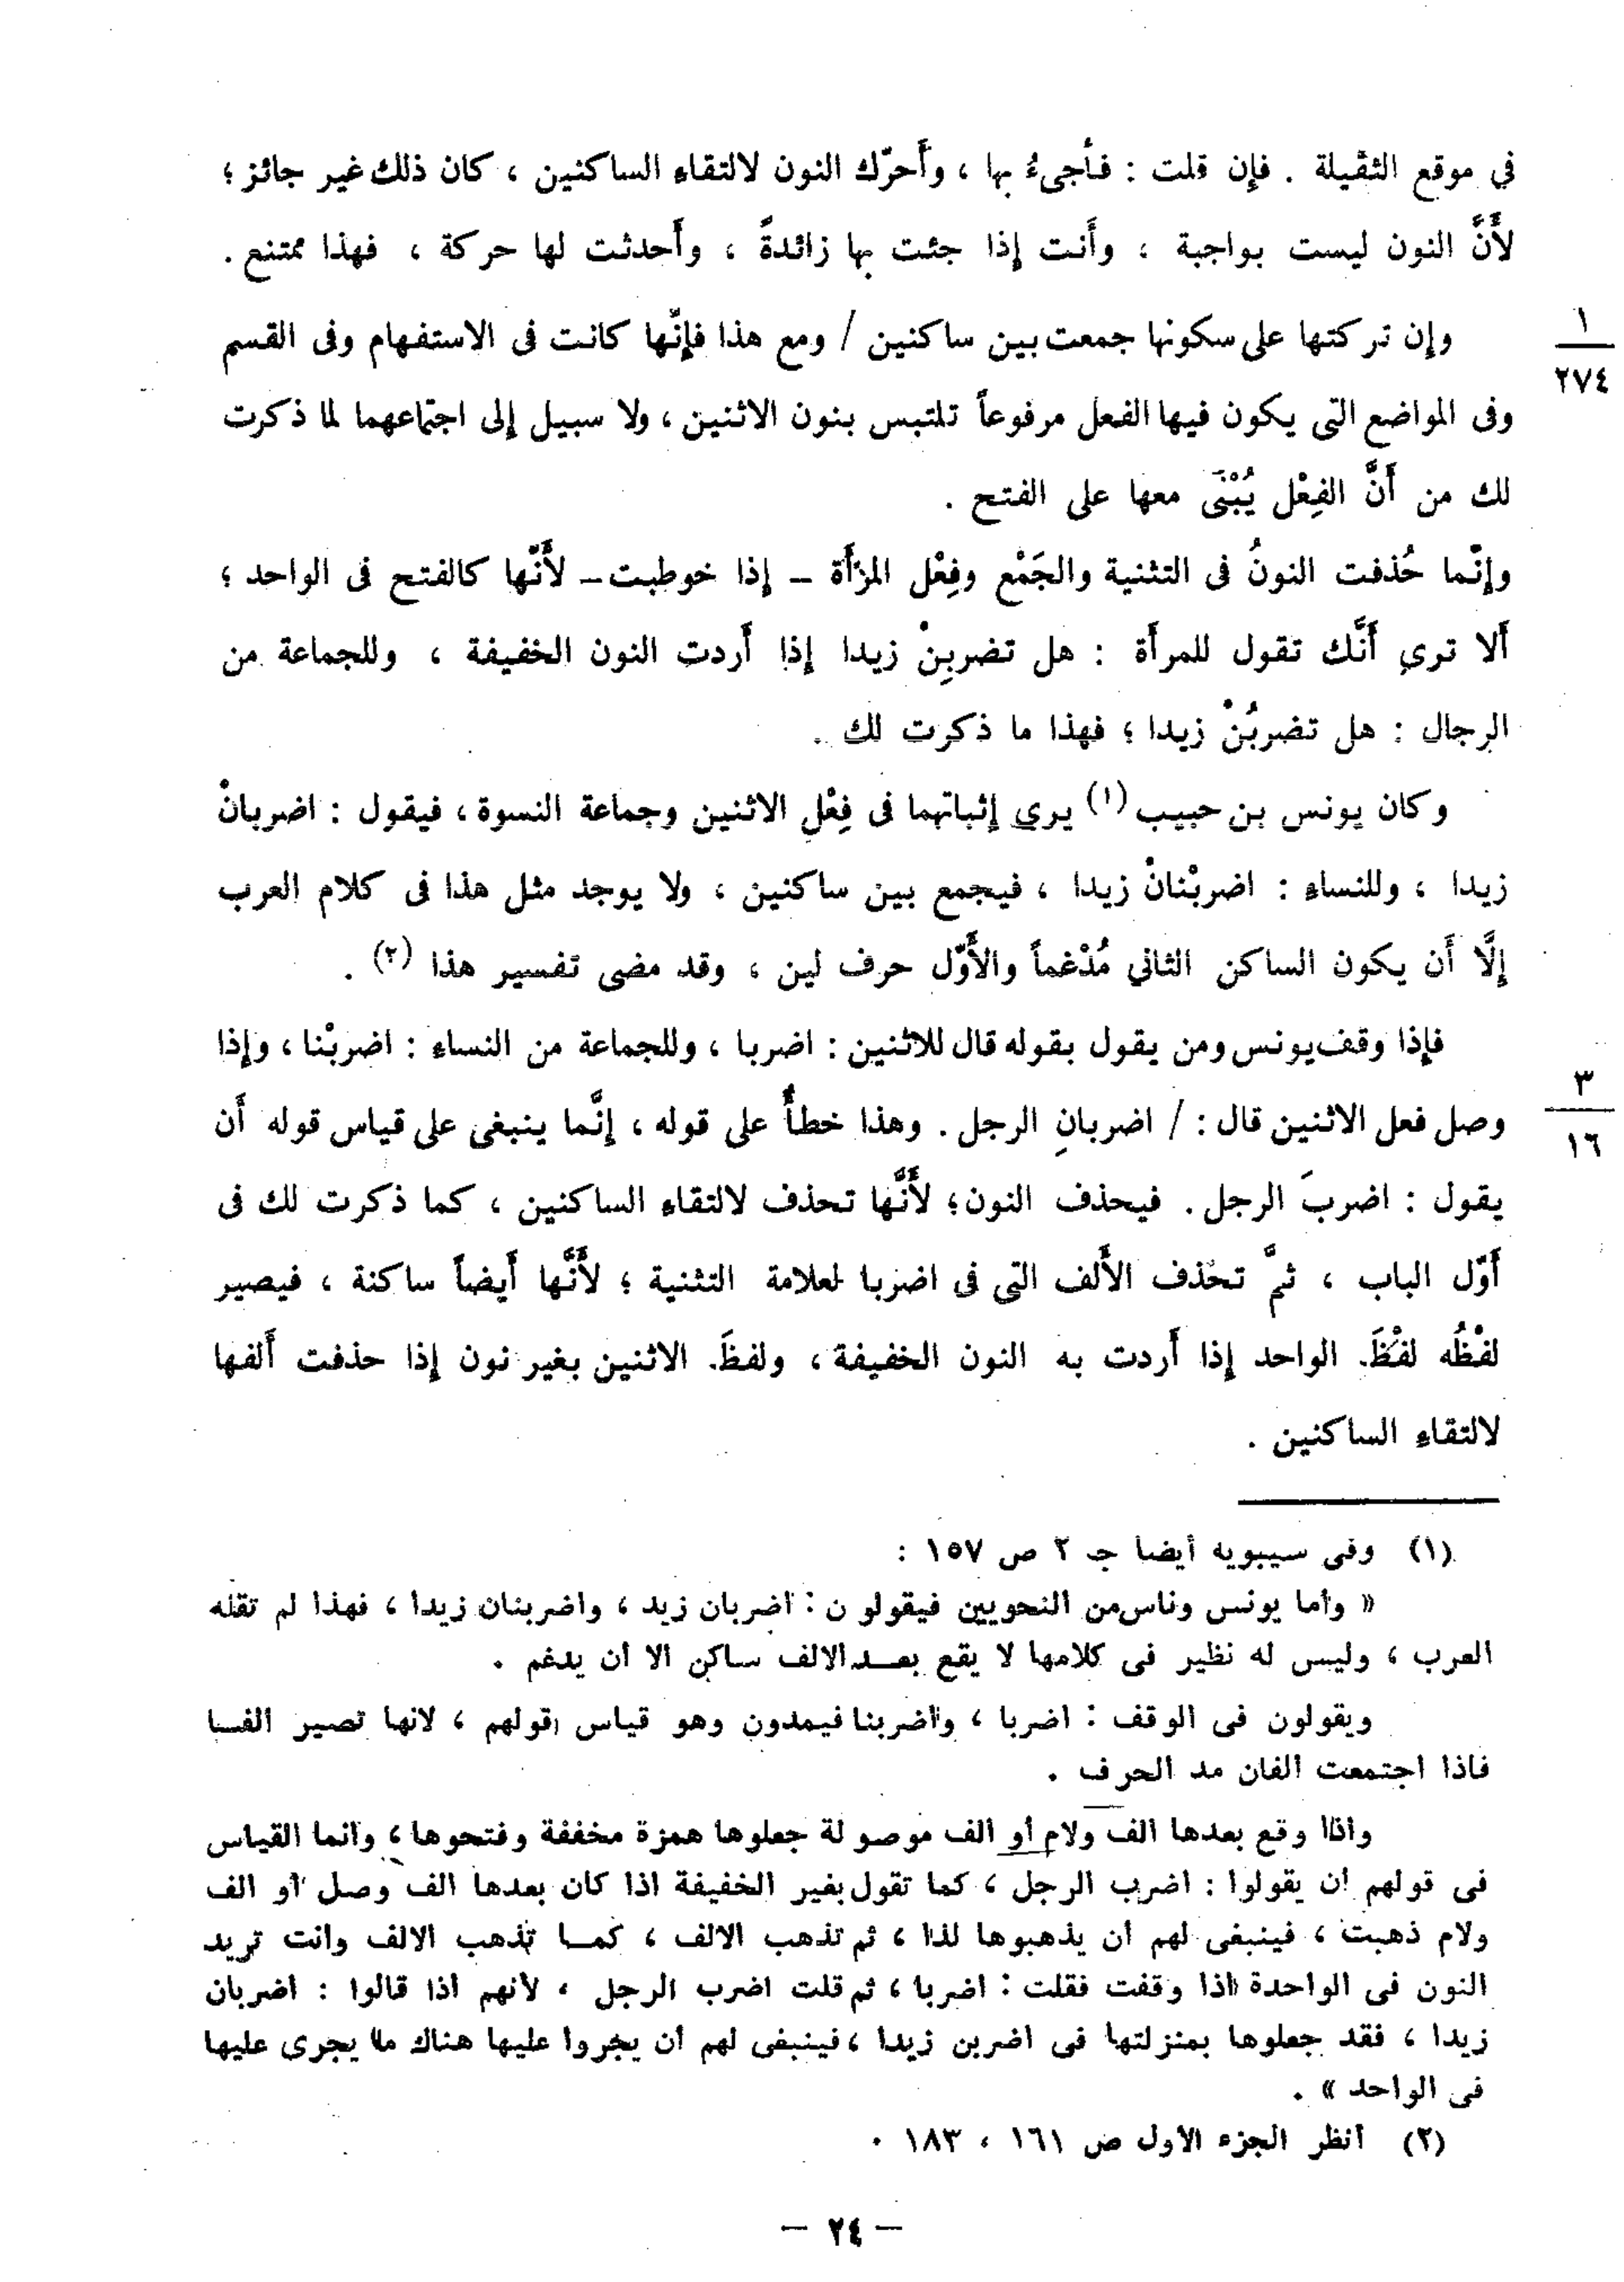 في موقع الثقيلة . فإن قلت : فأجىءُ بها ، وأَحرّك النون لالتقاء الساكنين ، كان ذلك غير جائز ؛
لأَنَّ النون ليست بواجبة ، وأَنت إذا جئت بها زائدةً ، وأَحدثت لها حركة ، فهذا ممتنع .
وإن تركتها على سكونها جمعت بين ساكنين / ومع هذا فإنَّها كانت فى الاستفهام وفى القسم
١
٢٧٤
وفى المواضع التى يكون فيها الفعل مرفوعاً تلتبس بنون الاثنين ، ولا سبيل إلى اجتماعهما لما ذكرت
لك من أَنَّ الفِعْل يُبْنَى معها على الفتح .
وإنَّما حُذفت النونُ فى التثنية والجَمْع وفِعْل المرْأَة – إذا خوطبت – لأَنَّها كالفتح فى الواحد ؛
أَلا ترى أَنَّك تقول للمرأَة : هل تضربِنْ زيدا إذا أَردت النون الخفيفة ، وللجماعة من
الرجال : هل تضربُنْ زيدا ؛ فهذا ما ذكرت لك .
وكان يونس بن حبيب (١) يرى إثباتهما فى فِعْلِ الاثنين وجماعة النسوة ، فيقول : اضربانْ
زيدا ، وللنساءِ : اضربْنانْ زيدا ، فيجمع بين ساكنين ، ولا يوجد مثل هذا فى كلام العرب
إلَّا أَن يكون الساكن الثاني مُدْغماً والأَوّل حرف لين ، وقد مضى تفسير هذا (٢) .
فإذا وقف يونس ومن يقول بقوله قال للاثنين : اضربا ، وللجماعة من النساءِ : اضربْنا ، وإذا
٣
١٦
وصل فعل الاثنين قال : / اضربانِ الرجل . وهذا خطأٌ على قوله ، إنَّما ينبغى على قياس قوله أَن
يقول : اضربَ الرجل . فيحذف النون ؛ لأَنَّها تحذف لالتقاءِ الساكنين ، كما ذكرت لك فى
أَوّل الباب ، ثمَّ تحذف الأَلف التى فى اضربا لعلامة التثنية ؛ لأَنَّها أَيضاً ساكنة ، فيصير
لفْظُه لفْظَ الواحد إذا أَردت به النون الخفيفة ، ولفظَ الاثنين بغير نون إذا حذفت أَلفها
لالتقاءِ الساكنين .
(١) وفى سيبويه أيضا جـ ٢ ص ١٥٧ :
« وأما يونس وناس من النحويين فيقولون : اضربان زيد ، واضربنان زيدا ، فهذا لم تقله
العرب ، وليس له نظير فى كلامها لا يقع بعــد الالف ساكن الا ان يدغم .
ويقولون فى الوقف : اضربا ، واضربنا فيمدون وهو قياس قولهم ، لانها تصير الفــا
فاذا اجتمعت الفان مد الحرف .
واذا وقع بعدها الف ولام أو الف موصولة جعلوها همزة مخففة وفتحوها ، وانما القياس
فى قولهم ان يقولوا : اضرب الرجل ، كما تقول بغير الخفيفة اذا كان بعدها الف وصل أو الف
ولام ذهبت ، فينبغى لهم ان يذهبوها لذا ، ثم تذهب الالف ، كمــا تذهب الالف وانت تريد
النون فى الواحدة اذا وقفت فقلت : اضربا ، ثم قلت اضرب الرجل ، لأنهم اذا قالوا : اضربان
زيدا ، فقد جعلوها بمنزلتها فى اضربن زيدا ، فينبغى لهم ان يجروا عليها هناك ما يجرى عليها
فى الواحد » .
(٢) انظر الجزء الاول ص ١٦١ ، ١٨٣ .
– ٢٤ –